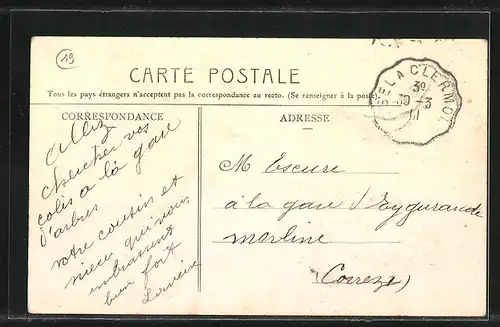 19
CARTE POSTALE
Tous les pays étrangers n'acceptent pas la correspondance au recto. (Se renseigner à la poste).
CORRESPONDANCE
ADRESSE
Allez
chercher vos
colis a la gare
d'arbres
votre cousin et
niece qui vous
embrassent
bien fort
M Escure
à la gare d'Eygurande
merline
(Correze)
LA CLERMON
30 -3
11